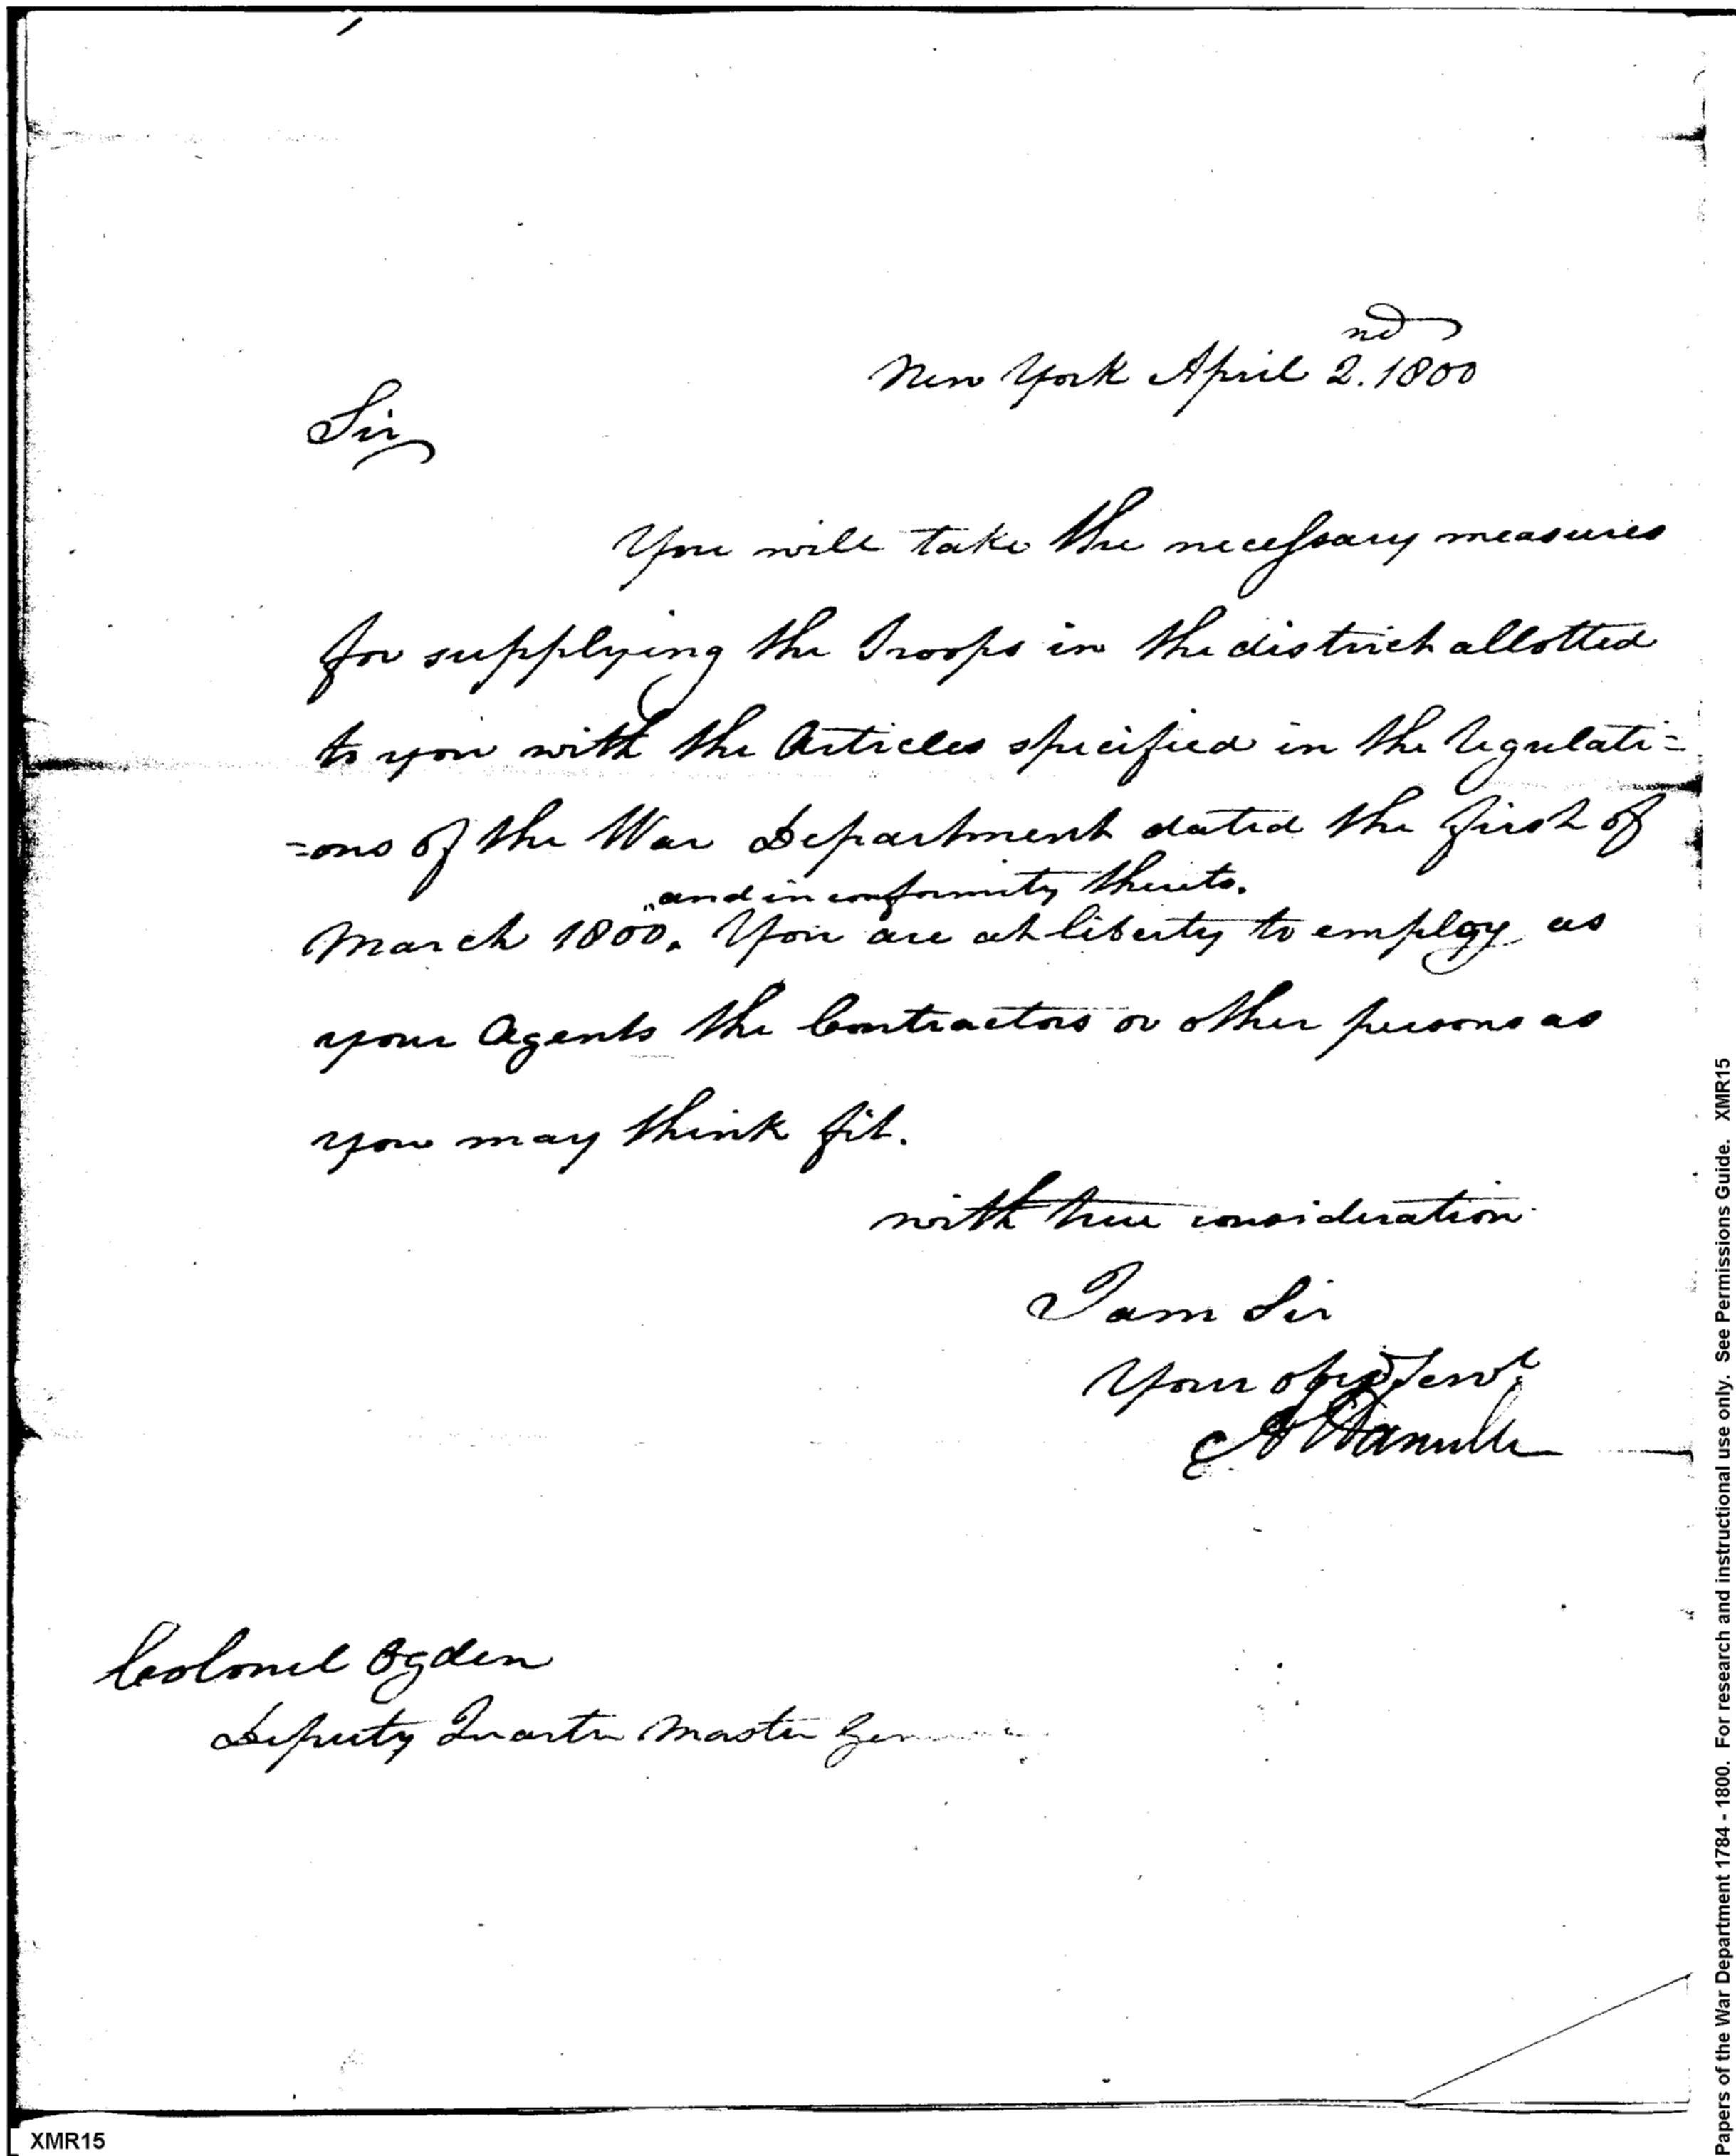 New York April 2.nd 1800
Sir
You will take the necessary measures
for supplying the Troops in the district allotted
to you with the Articles specified in the regulati=
=ons of the War Department dated the first of
and in conformity thereto.
March 1800. You are at liberty to employ as
your Agents the Contractors or other persons as
you may think fit.
with true consideration
I am Sir
Your obed Servt
A Hamilton
Colonel Ogden
Deputy Quarter Master General
XMR15
Papers of the War Department 1784 - 1800. For research and instructional use only. See Permissions Guide. XMR15